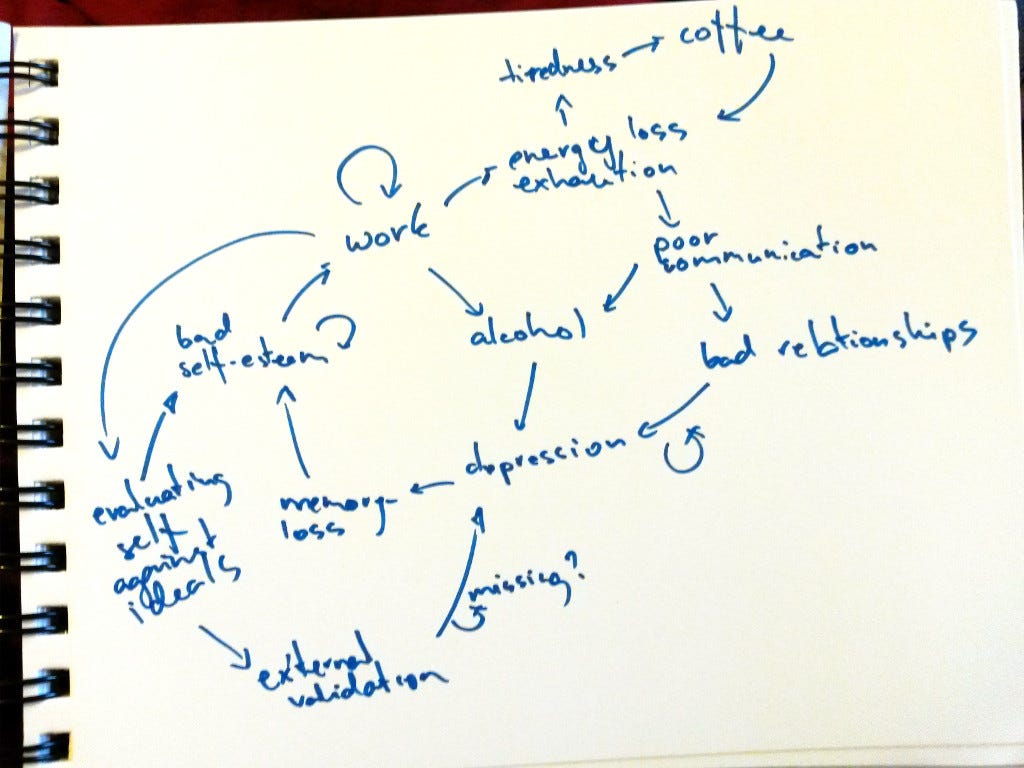 coffee
tiredness
energy loss
exhaution
work
poor
communication
bad
self-esteem
alcohol
bad relationships
depression
evaluating
self
against
ideals
memory
loss
missing?
external
validation